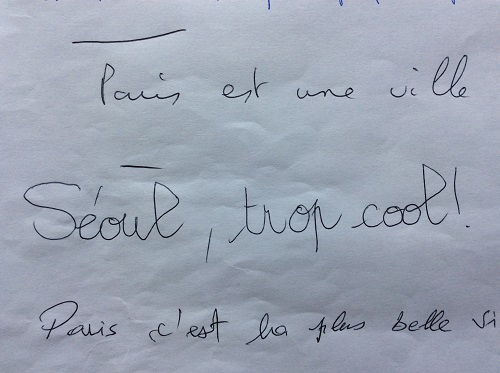 Paris est une ville
Séoul, trop cool!
Paris c'est la plus belle vi